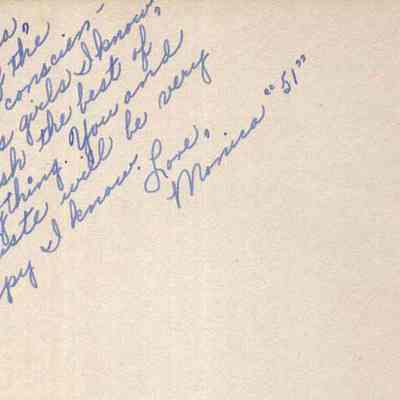 s,
the
conscien-
s girls I know
sh the best of
ything. You and
iste will be very
py I know. Love,
Monica "51"